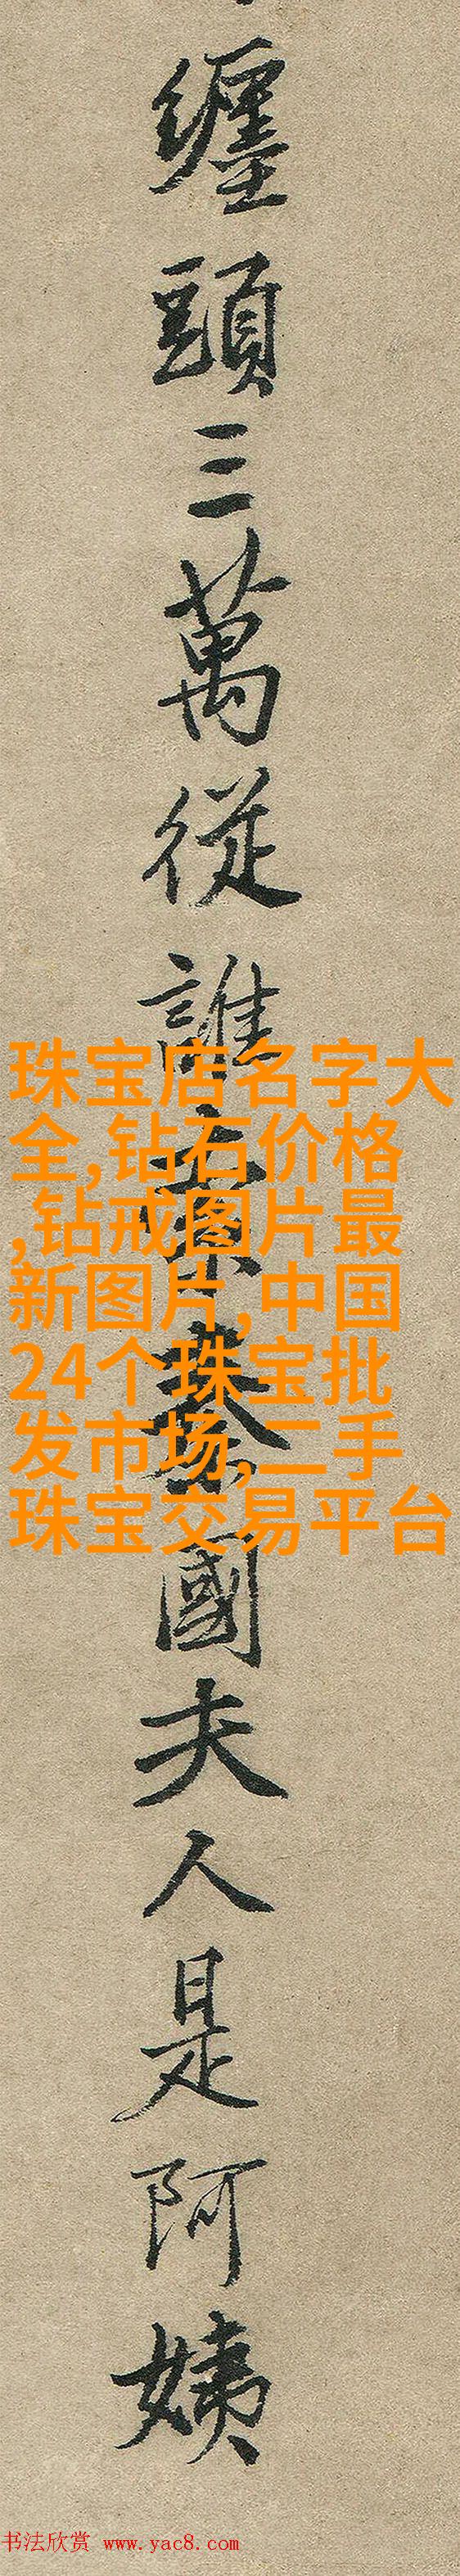 纏頭三萬從誰索秦國夫人是阿姨
珠宝店名字大
全,钻石价格
,钻戒图片最
新图片,中国
24个珠宝批
发市场,二手
珠宝交易平台
书法欣赏 www.yac8.com